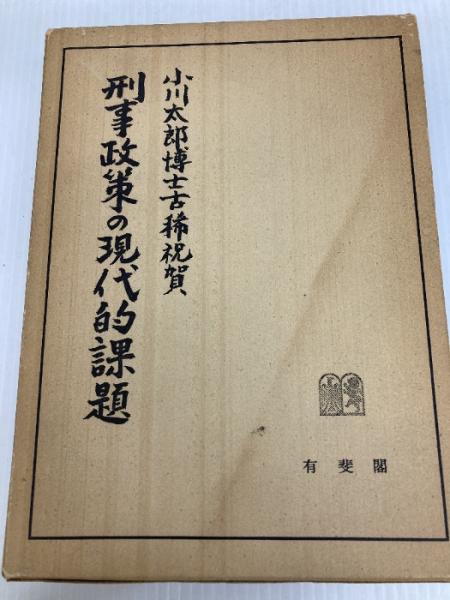 小川太郎博士古稀祝賀
刑事政策の現代的課題
有斐閣